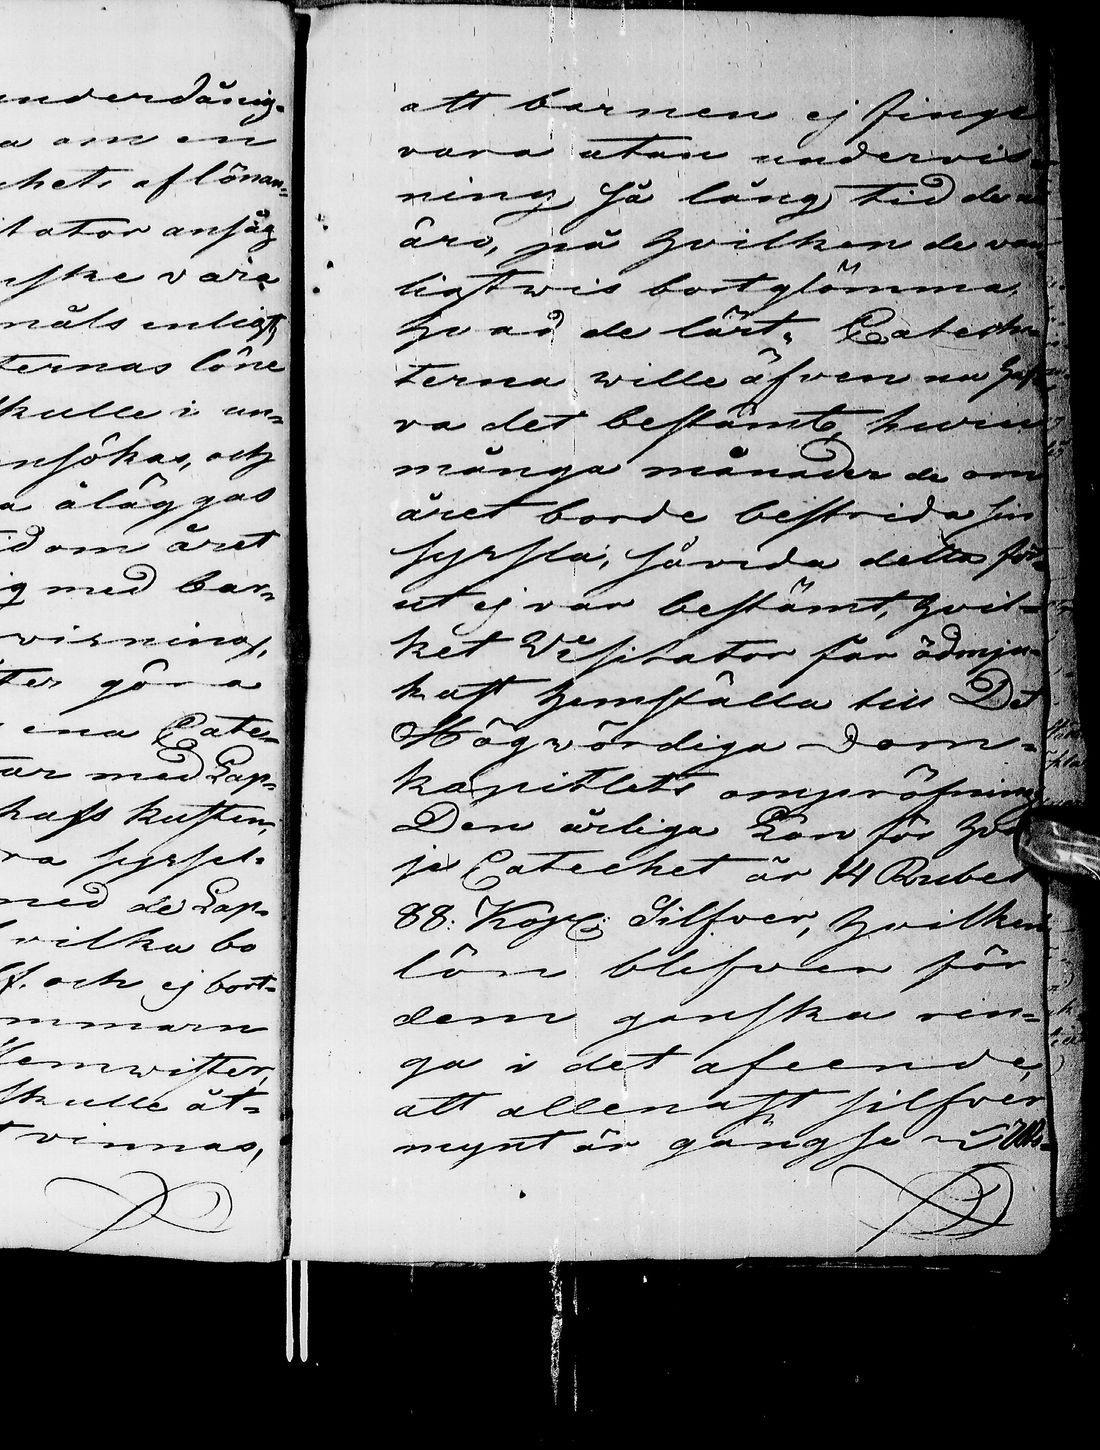 underdånig-
a om en
chets aflönan-
itator ansåg
nske vara
måls enligt
ternas löne
skulle i un-
nsökas, och
a åläggas
id om året
ig med bar-
visning,
ter göra
ena Cate-
tar med Lap-
hafs kusten,
ra syssel-
med de Lap-
vilka bo
och ej bort-
mmarn
hemvister,
skulle åt-
t vinnas,
att barnen ej finge
vara utan undervis-
ning så lång tid de
äro, på hvilken de van
ligtwis bortglömma,
hvad de lärt. Cateche
terna wille äfven nu haf
va det bestämt, huru
många månader de om
året borde bestrida sin
syssla, såvida detta för-
ut ej var bestämt, hvil-
ket Visitator får ödmju-
kast hemställa till Det
Högwördiga Dom-
kapitlets ompröfning
Den årliga Lön för hvar
je Catechet är 14 Rubel
88: Kop: Silfver, hvilken
lön blefven för
dem ganska rin-
ga i det afeende,
att allenast silfver
mynt är gängse i